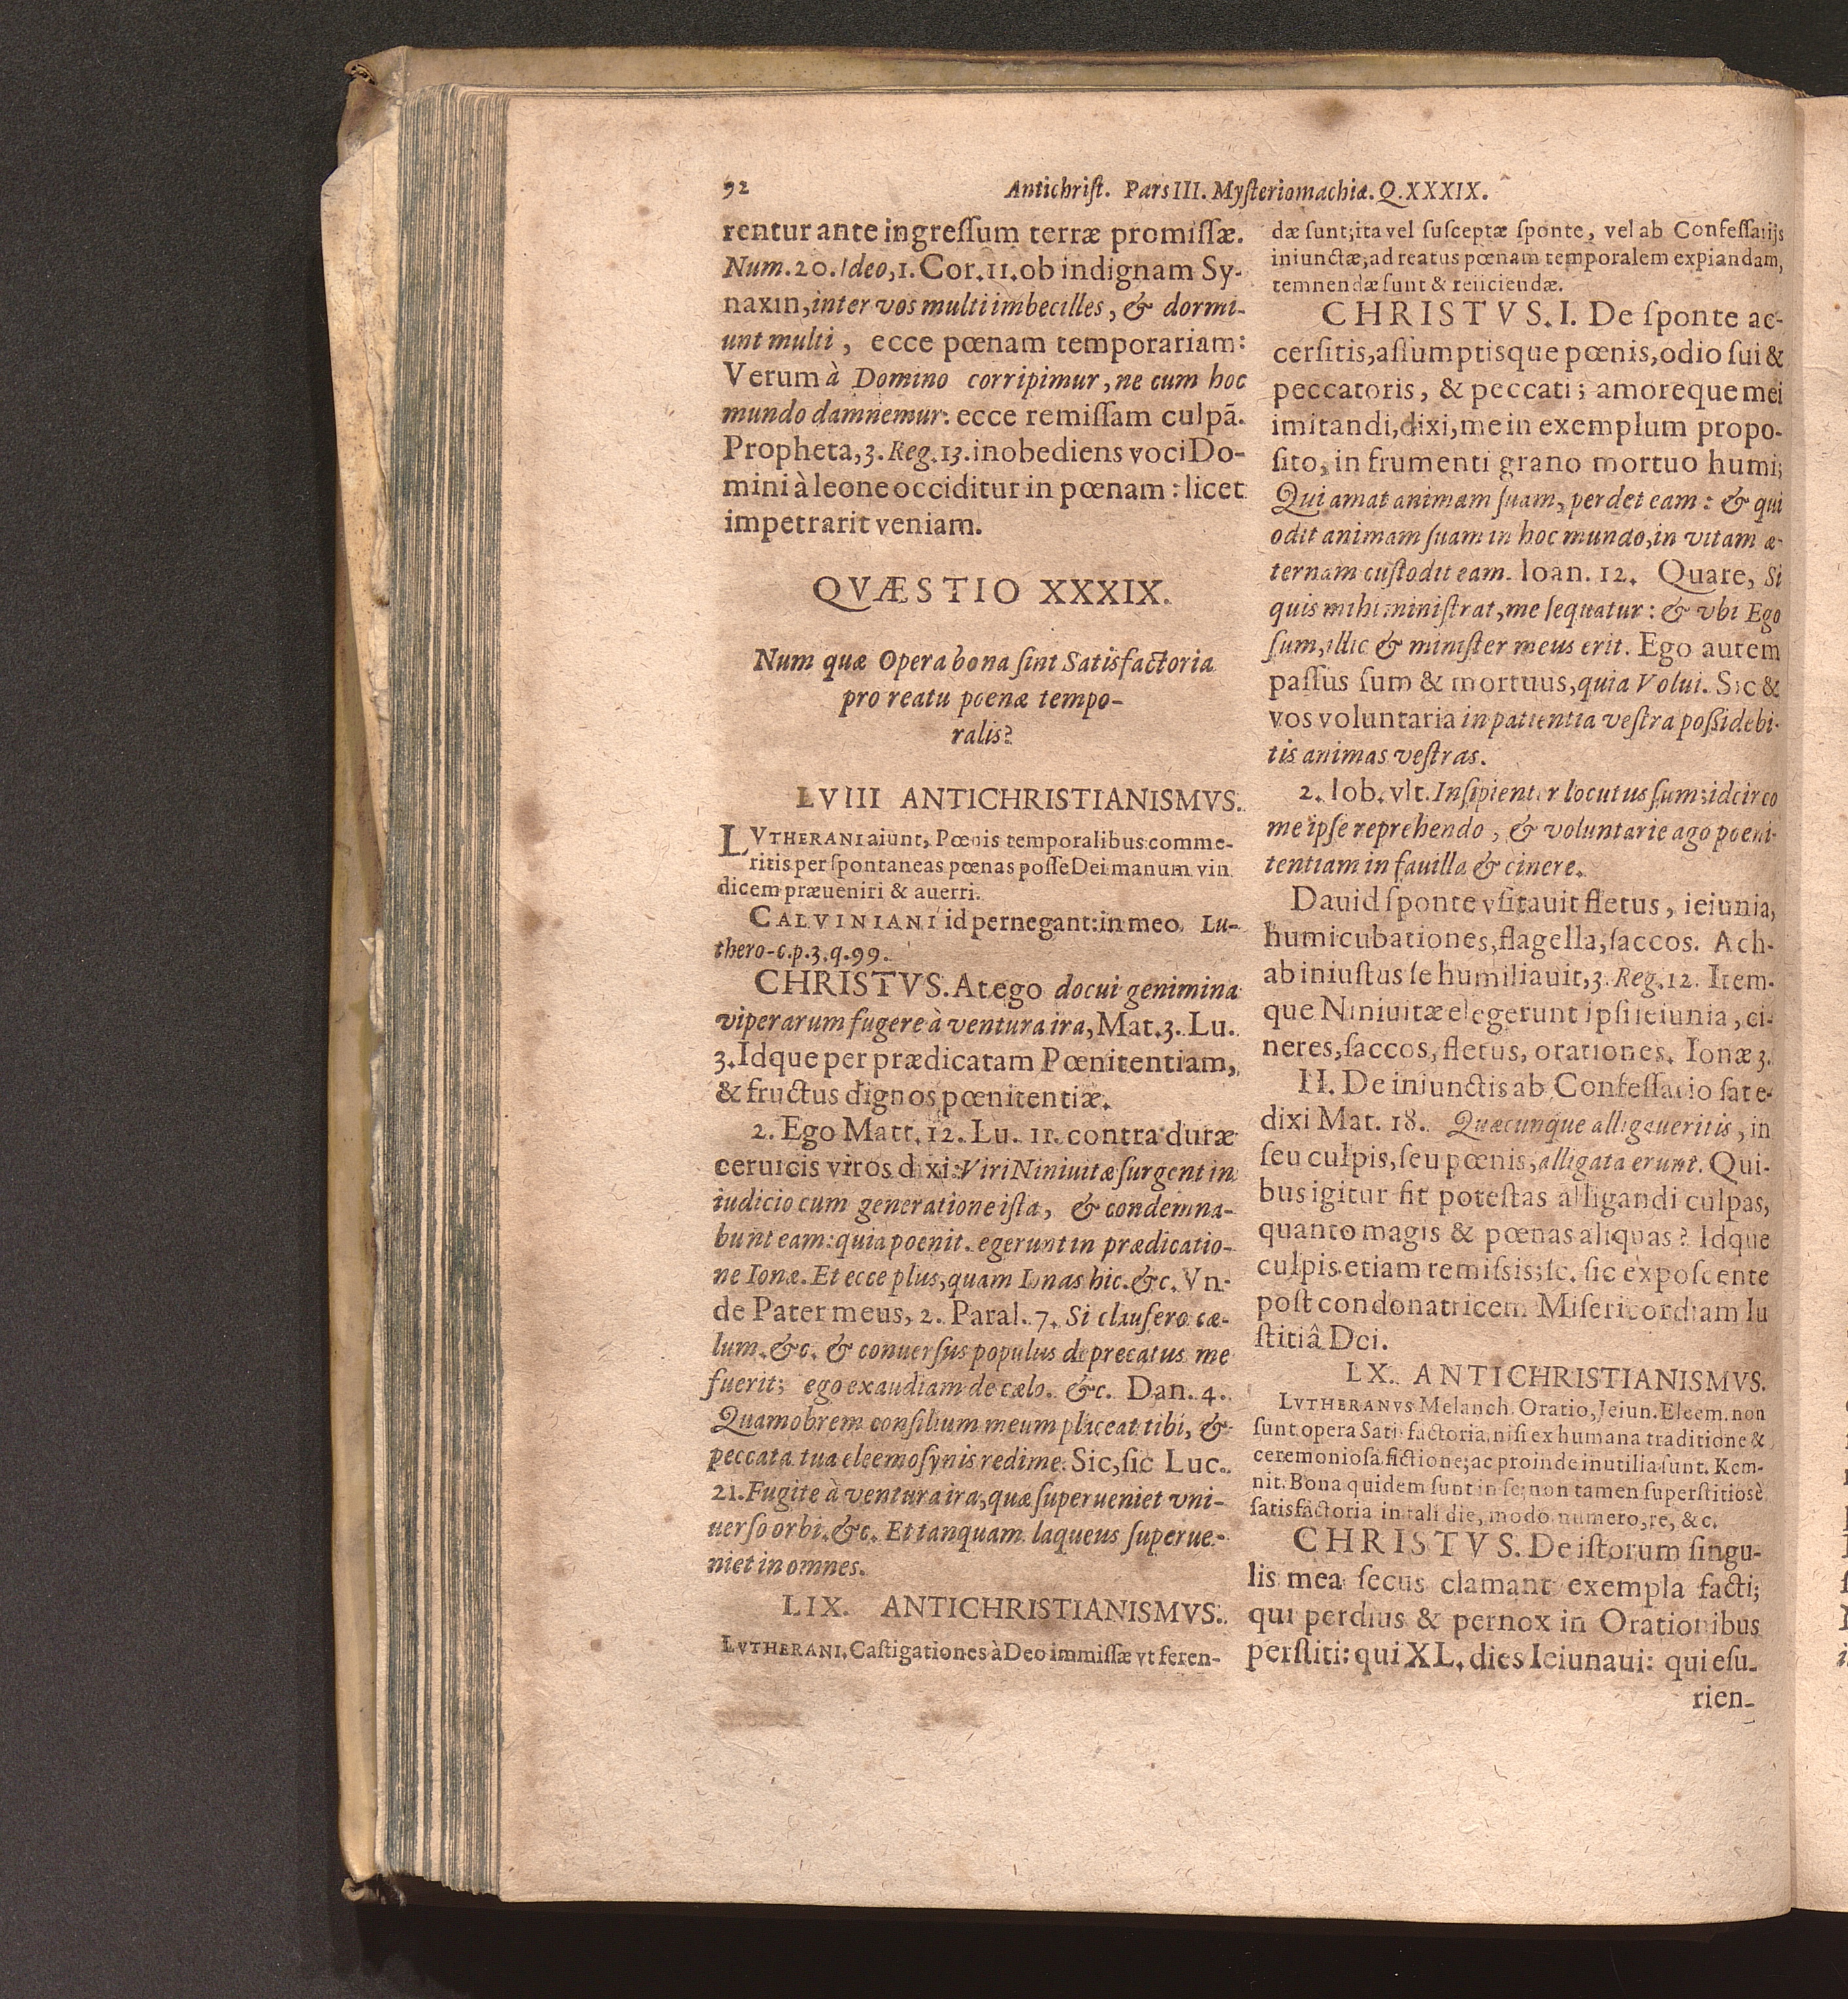 92
Antichrist. Pars III. Mysteriomachiæ. Q. XXXIX.
rentur ante ingressum terræ promissæ.
Num. 20. Ideo, 1. Cor. 11. ob indignam Sy-
naxin, inter vos multi imbecilles, & dormi-
unt multi, ecce pœnam temporariam:
Verum à Domino corripimur, ne cum hoc
mundo damnemur: ecce remissam culpã.
Propheta, 3. Reg. 13. inobediens voci Do-
mini à leone occiditur in pœnam: licet
impetrarit veniam.
QVÆSTIO XXXIX.
Num quæ Opera bona sint Satisfactoria
pro reatu poenæ tempo-
ralis?
LVIII ANTICHRISTIANISMVS.
LVTHERANI aiunt, Pœnis temporalibus comme-
ritis per spontaneas pœnas posse Dei manum vin
dicem præueniri & auerri.
CALVINIANI id pernegant: in meo Lu-
thero-c. p. 3. q. 99.
CHRISTVS. At ego docui genimina
viperarum fugere à ventura ira, Mat. 3. Lu.
3. Idque per prædicatam Pœnitentiam,
& fructus dignos pœnitentiæ.
2. Ego Matt. 12. Lu. 11. contra duræ
ceruicis viros dixi: Viri Niniuitæ surgent in
iudicio cum generatione ista, & condemna-
bunt eam: quia poenit. egerunt in prædicatio-
ne Ionæ. Et ecce plus, quam Ionas hic. &c. Vn-
de Pater meus, 2. Paral. 7. Si clausero cæ-
lum. &c. & conuersus populus deprecatus me
fuerit; ego exaudiam de cælo. &c. Dan. 4.
Quamobrem consilium meum placeat tibi, &
peccata tua eleemosynis redime. Sic, sic Luc.
21. Fugite à ventura ira, quæ superueniet vni-
uerso orbi. &c. Et tanquam laqueus superue-
niet in omnes.
LIX. ANTICHRISTIANISMVS.
LVTHERANI. Castigationes à Deo immissæ vt feren-
dæ sunt; ita vel susceptæ sponte, vel ab Confessarijs
iniunctæ, ad reatus pœnam temporalem expiandam,
temnendæ sunt & reiiciendæ.
CHRISTVS. I. De sponte ac-
cersitis, assumptisque pœnis, odio sui &
peccatoris, & peccati; amoreque mei
imitandi, dixi, me in exemplum propo-
sito, in frumenti grano mortuo humi;
Qui amat animam suam, perdet eam: & qui
odit animam suam in hoc mundo, in vitam æ-
ternam custodit eam. Ioan. 12. Quare, Si
quis mihi ministrat, me sequatur: & vbi Ego
sum, illic & minister meus erit. Ego autem
passus sum & mortuus, quia Volui. Sic &
vos voluntaria in patientia vestra possidebi-
tis animas vestras.
2. Iob. vlt. Insipienter locutus sum; idcirco
me ipse reprehendo, & voluntarie ago poeni-
tentiam in fauilla & cinere.
Dauid sponte vsitauit fletus, ieiunia,
humicubationes, flagella, saccos. Ach-
ab iniustus se humiliauit, 3. Reg. 12. Item-
que Niniuitæ elegerunt ipsi ieiunia, ci-
neres, saccos, fletus, orationes. Ionæ 3.
II. De iniunctis ab Confessario sat e-
dixi Mat. 18. Quæcunque alligaueritis, in
seu culpis, seu pœnis, alligata erunt. Qui-
bus igitur fit potestas alligandi culpas,
quanto magis & pœnas aliquas? Idque
culpis etiam remissis; sc. sic exposcente
post condonatricem Misericordiam Iu
stitiâ Dei.
LX. ANTICHRISTIANISMVS.
LVTHERANVS Melanch. Oratio, Jeiun. Eleem. non
sunt opera Satisfactoria, nisi ex humana traditione &
ceremoniosa fictione; ac proinde inutilia sunt. Kem-
nit. Bona quidem sunt in se; non tamen superstitiosè
satisfactoria in tali die, modo, numero, re, &c.
CHRISTVS. De istorum singu-
lis mea secus clamant exempla facti;
qui perdius & pernox in Orationibus
perstiti: qui XL. dies Ieiunaui: qui esu-
rien-